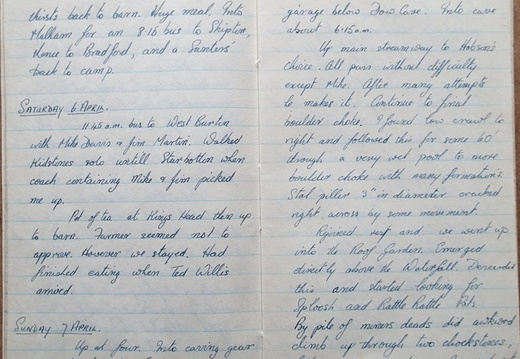 thirsts back to barn. Huge meal. Into
Malham for an 8.15 bus to Skipton,
thence to Bradford, and a Saints'
back to camp.
SATURDAY 6 APRIL.
11.45 a.m. bus to West Burton
with Mike Davis & Jim Martin. Walked
Kidstones solo untill Starbotton when
coach containing Mike & Jim picked
me up.
Pot of tea at Kings Head then up
to barn. Farmer seemed not to
approve. However we stayed. Had
finished eating when Ted Willis
arrived.
SUNDAY 7 APRIL.
Up at four. Into caving gear
garage below Dow Cave. Into cave
about 6.15 a.m.
Up main streamway to Hobson's
Choice. All pass without difficulty
except Mike. After many attempts
he makes it. Continue to final
boulder choke. I found low crawl to
right and followed this for some 60'
through a very wet pool to more
boulder choke with many formations.
Stal piller 3" in diameter cracked
right across by some movement.
Rejoined rest and we went up
into the Roof Garden. Emerged
directly above the Waterfall. Descended
this and started looking for
Sploosh and Rattle Rattle Pots.
By pile of miners deads did awkward
climb up through two chockstones,